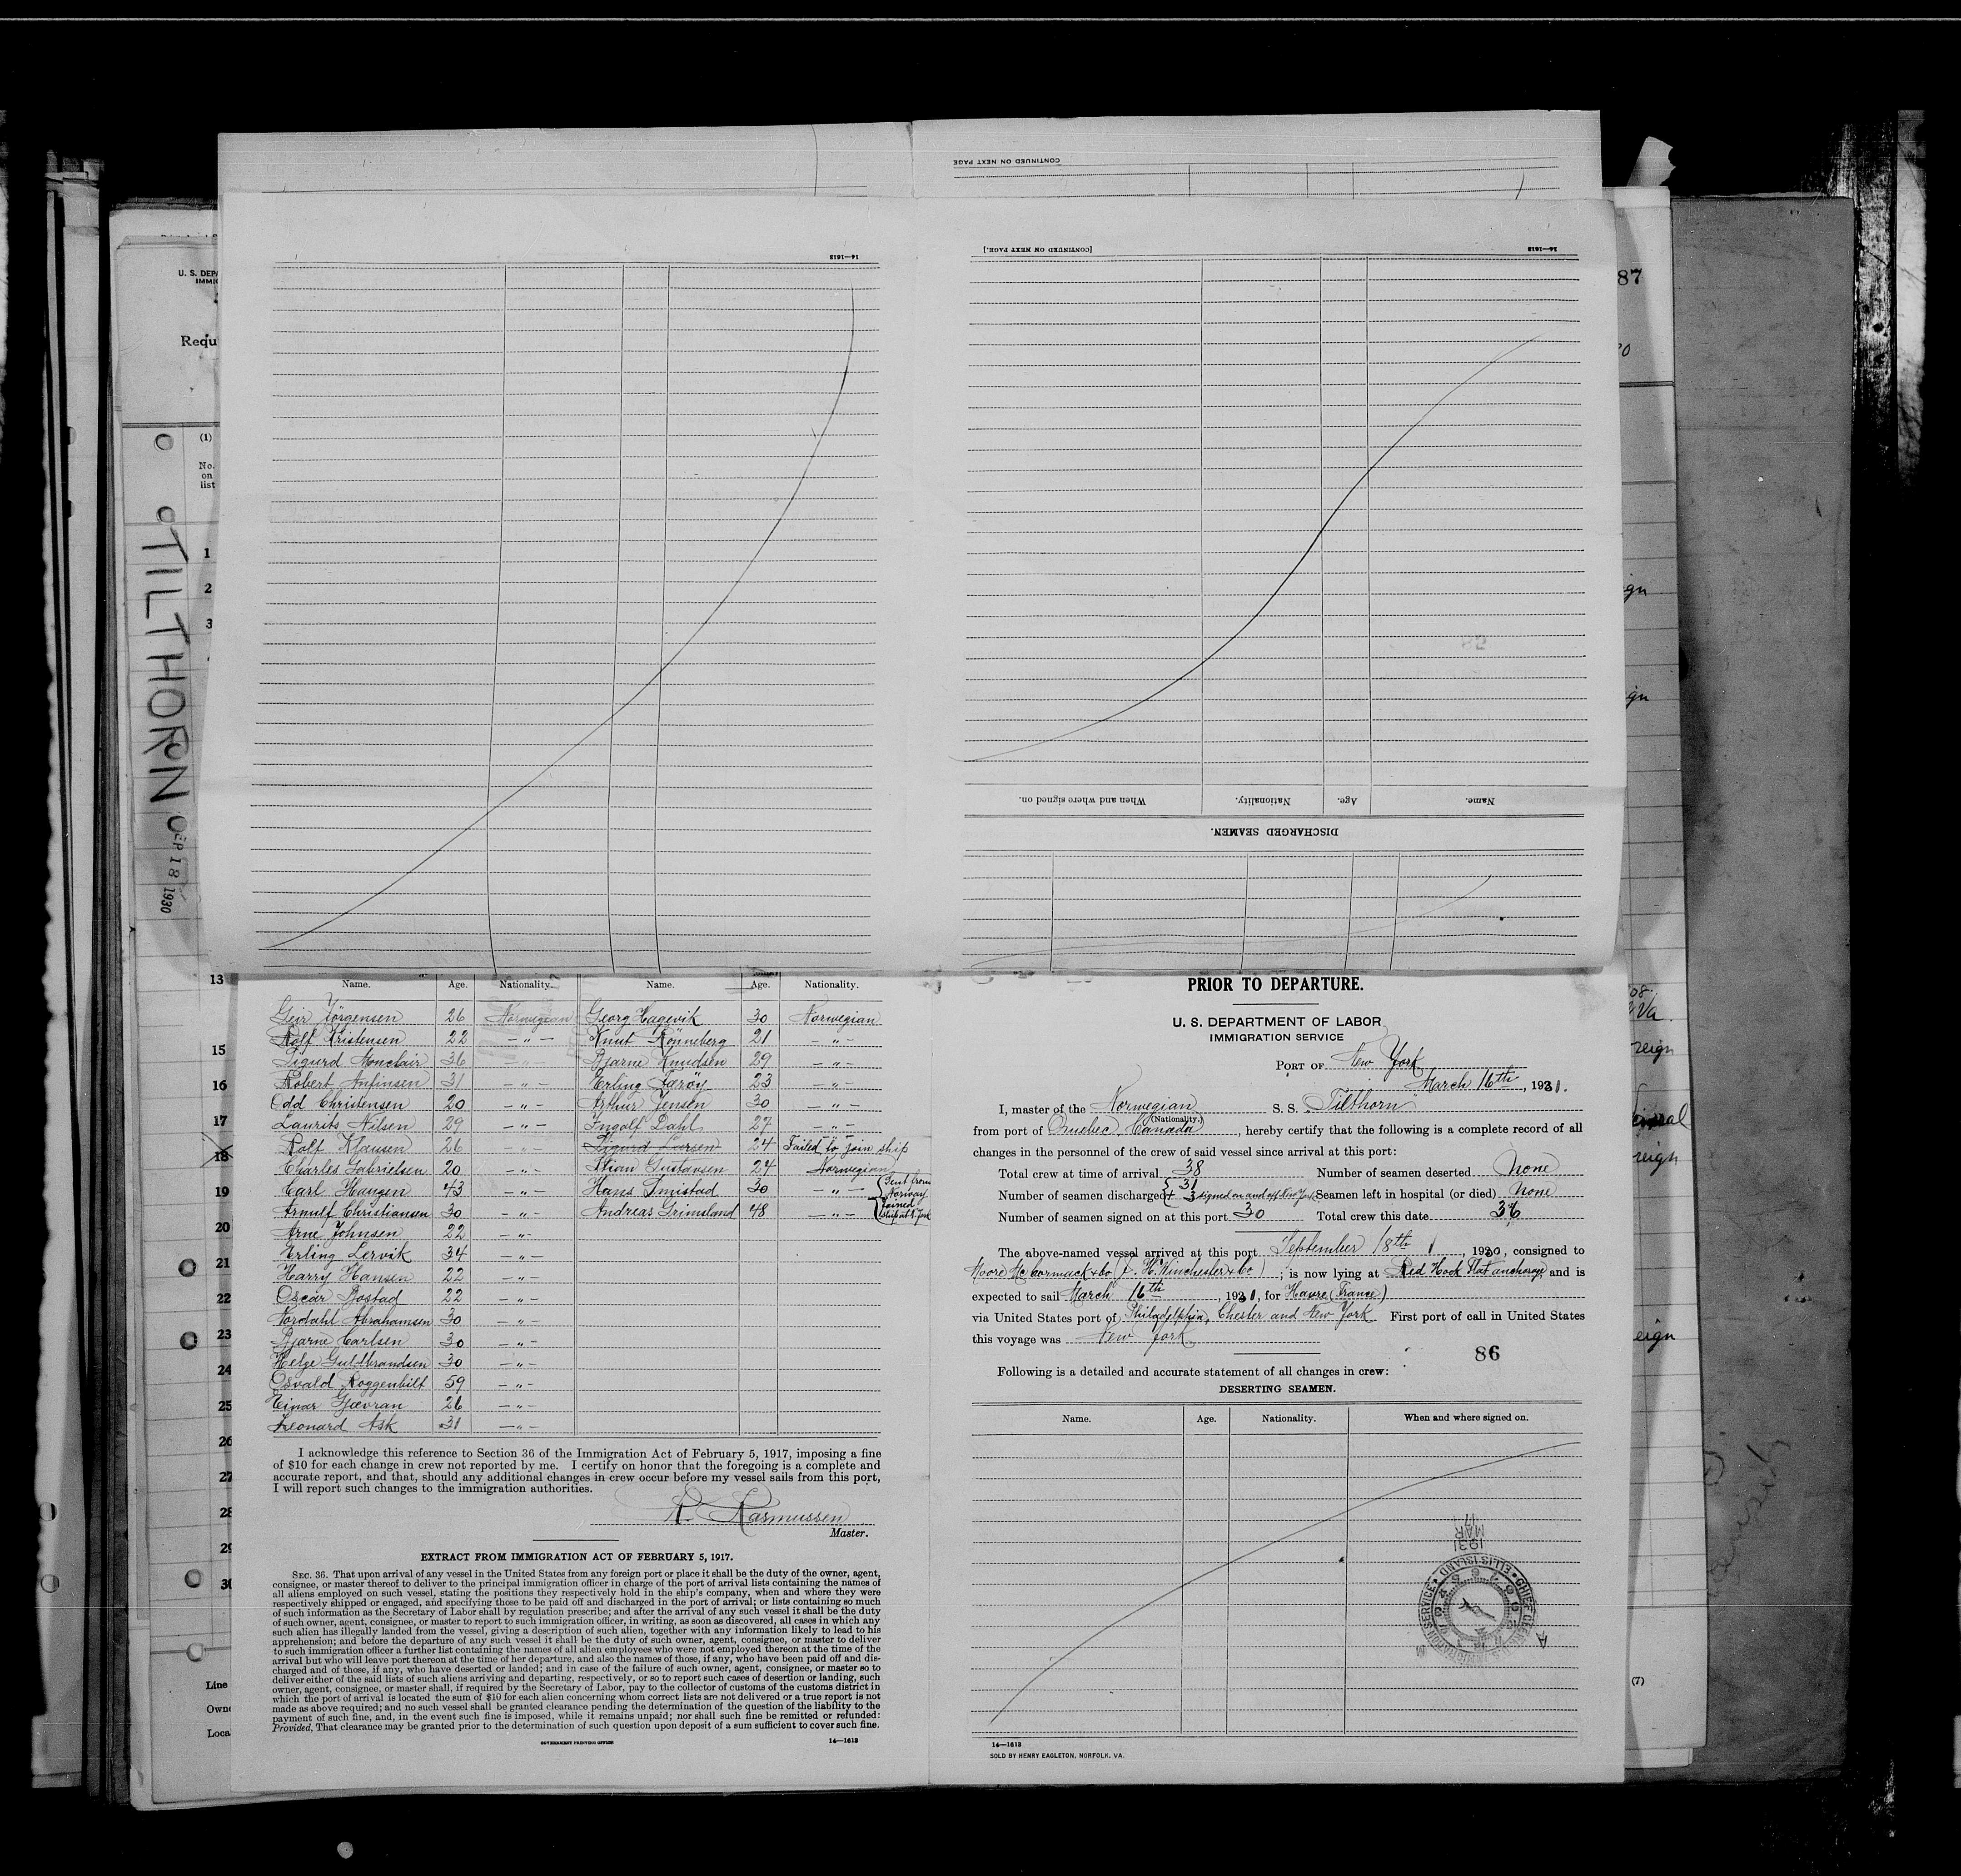 CONTINUED ON NEXT PAGE
14—1613
[CONTINUED ON NEXT PAGE.]
14—1613
Name.
Age.
Nationality.
When and where signed on.
DISCHARGED SEAMEN.
U. S. DEPA
IMMIG
Requ
(1)
No.
on
list
1
2
3
TILTHORN
SEP 18 1930
13
15
16
17
18
19
20
21
22
23
24
25
26
27
28
29
30
Line
Owne
Loca
87
(7)
Name. Age. Nationality. Name. Age. Nationality.
Geir Jörgensen 26 Norwegian Georg Hagevik 30 Norwegian
Rolf Kristensen 22 — „ — Knut Rönneberg 21 — „ —
Sigurd Monclair 36 Bjarne Knudsen 29 — „ —
Robert Anfinsen 31 — „ — Erling Færöy 23 — „ —
Odd Christensen 20 — „ — Arthur Jensen 30 — „ —
Laurits Nilsen 29 — „ — Ingolf Dahl 27 — „ —
Rolf Klausen 26 — „ — Sigurd Larsen 24 Failed to join ship
Charles Gabrielsen 20 — „ — Stian Gustavsen 24 Norwegian
Carl Haugen 43 — „ — Hans Smistad 30 — „ — Sent from Norway
Arnulf Christiansen 30 — „ — Andreas Grimsland 48 — „ — joined ship at N. York
Arne Johnsen 22 — „ —
Erling Lervik 34 — „ —
Harry Hansen 22 — „ —
Oscar Bostad 22 — „ —
Nordahl Abrahamsen 30 — „ —
Bjarne Carlsen 30 — „ —
Helge Guldbrandsen 30 — „ —
Osvald Roggenbilt 59 — „ —
Einar Gjævran 26 — „ —
Leonard Ask 31 — „ —
I acknowledge this reference to Section 36 of the Immigration Act of February 5, 1917, imposing a fine
of $10 for each change in crew not reported by me. I certify on honor that the foregoing is a complete and
accurate report, and that, should any additional changes in crew occur before my vessel sails from this port,
I will report such changes to the immigration authorities.
R. Rasmussen
Master.
EXTRACT FROM IMMIGRATION ACT OF FEBRUARY 5, 1917.
SEC. 36. That upon arrival of any vessel in the United States from any foreign port or place it shall be the duty of the owner, agent,
consignee, or master thereof to deliver to the principal immigration officer in charge of the port of arrival lists containing the names of
all aliens employed on such vessel, stating the positions they respectively hold in the ship's company, when and where they were
respectively shipped or engaged, and specifying those to be paid off and discharged in the port of arrival; or lists containing so much
of such information as the Secretary of Labor shall by regulation prescribe; and after the arrival of any such vessel it shall be the duty
of such owner, agent, consignee, or master to report to such immigration officer, in writing, as soon as discovered, all cases in which any
such alien has illegally landed from the vessel, giving a description of such alien, together with any information likely to lead to his
apprehension; and before the departure of any such vessel it shall be the duty of such owner, agent, consignee, or master to deliver
to such immigration officer a further list containing the names of all alien employees who were not employed thereon at the time of the
arrival but who will leave port thereon at the time of her departure, and also the names of those, if any, who have been paid off and dis-
charged and of those, if any, who have deserted or landed; and in case of the failure of such owner, agent, consignee, or master so to
deliver either of the said lists of such aliens arriving and departing, respectively, or so to report such cases of desertion or landing, such
owner, agent, consignee, or master shall, if required by the Secretary of Labor, pay to the collector of customs of the customs district in
which the port of arrival is located the sum of $10 for each alien concerning whom correct lists are not delivered or a true report is not
made as above required; and no such vessel shall be granted clearance pending the determination of the question of the liability to the
payment of such fine, and, in the event such fine is imposed, while it remains unpaid; nor shall such fine be remitted or refunded:
Provided, That clearance may be granted prior to the determination of such question upon deposit of a sum sufficient to cover such fine.
GOVERNMENT PRINTING OFFICE
14—1613
PRIOR TO DEPARTURE.
U. S. DEPARTMENT OF LABOR
IMMIGRATION SERVICE
PORT OF New York
March 16th, 1931.
I, master of the Norwegian S. S. "Tilthorn"
(Nationality.)
from port of Quebec, Canada, hereby certify that the following is a complete record of all
changes in the personnel of the crew of said vessel since arrival at this port:
Total crew at time of arrival 38 Number of seamen deserted None
Number of seamen discharged { 31 + 3 signed on and off New York Seamen left in hospital (or died) None
Number of seamen signed on at this port 30 Total crew this date 36
The above-named vessel arrived at this port September 18th, 1930, consigned to
Moore Mc Cormack & Co (J. H. Winchester & Co); is now lying at Red Hook Flat anchorage and is
expected to sail March 16th, 1931, for Havre (France)
via United States port of Philadelphia, Chester and New York. First port of call in United States
this voyage was New York
86
Following is a detailed and accurate statement of all changes in crew:
DESERTING SEAMEN.
Name. Age. Nationality. When and where signed on.
1931 MAR 17
CHIEF CLERK U.S. IMMIGRATION SERVICE ELLIS ISLAND
14—1613
SOLD BY HENRY EAGLETON, NORFOLK, VA.